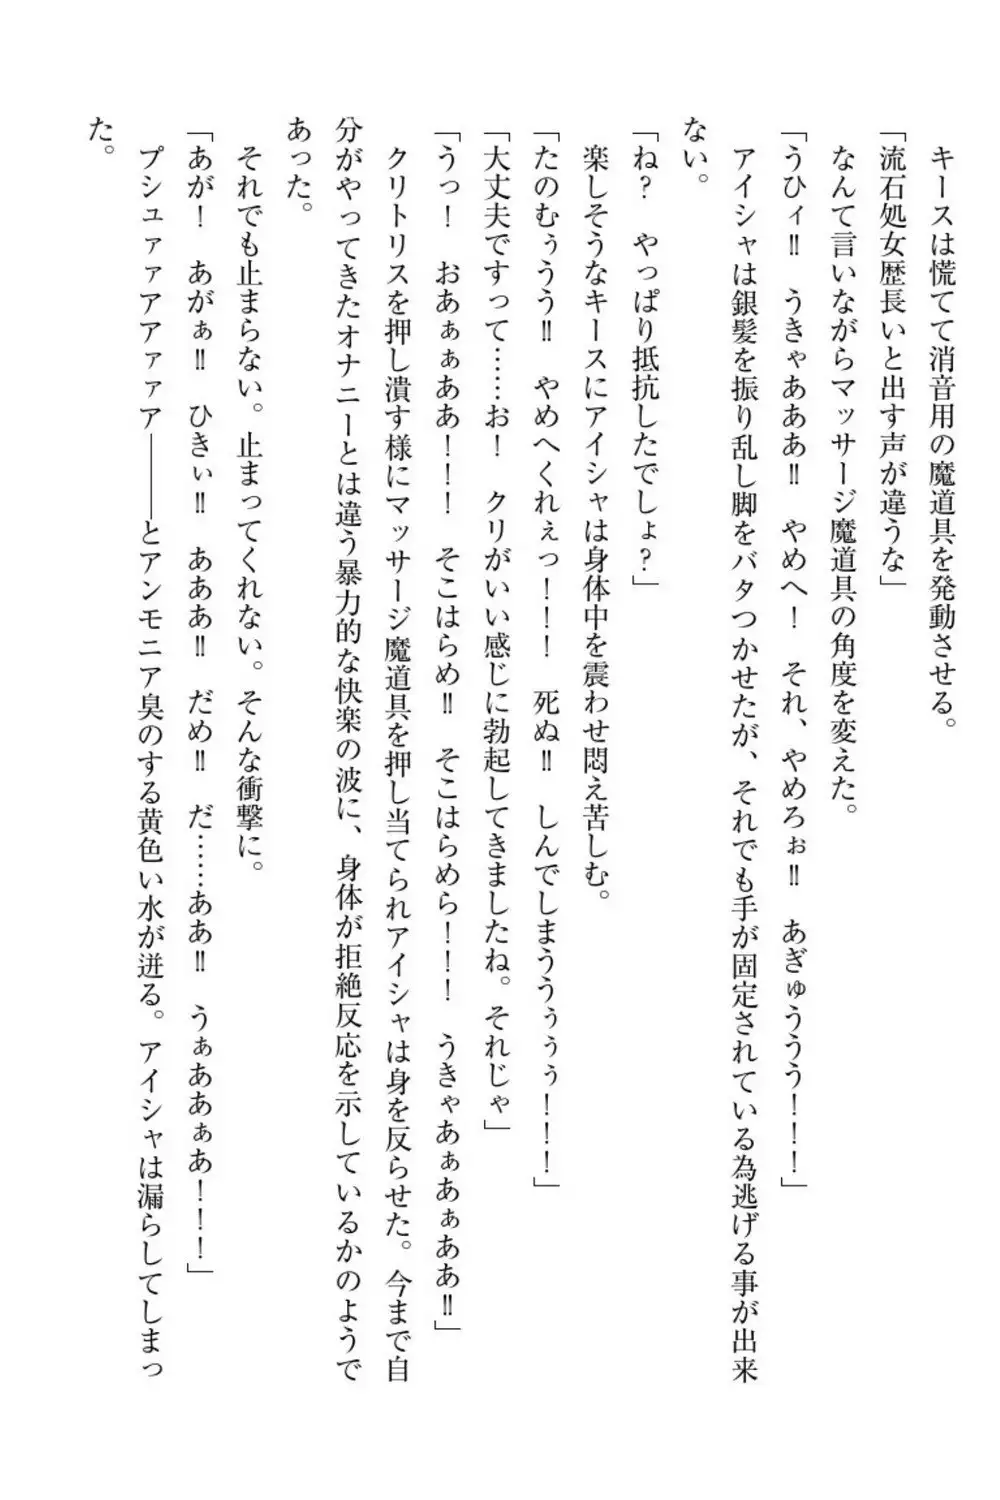 キースは慌てて消音用の魔道具を発動させる。
「流石処女歴長いと出す声が違うな」
　なんて言いながらマッサージ魔道具の角度を変えた。
「うひィ‼　うきゃあああ‼　やめへ！　それ、やめろぉ‼　あぎゅううう！！！」
　アイシャは銀髪を振り乱し脚をバタつかせたが、それでも手が固定されている為逃げる事が出来
ない。
「ね？　やっぱり抵抗したでしょ？」
　楽しそうなキースにアイシャは身体中を震わせ悶え苦しむ。
「たのむぅうう‼　やめへくれぇっ！！！　死ぬ‼　しんでしまううぅぅぅ！！！」
「大丈夫ですって……お！　クリがいい感じに勃起してきましたね。それじゃ」
「うっ！　おあぁぁああ！！！　そこはらめ‼　そこはらめら！！！　うきゃあぁあぁああ‼」
　クリトリスを押し潰す様にマッサージ魔道具を押し当てられアイシャは身を反らせた。今まで自
分がやってきたオナニーとは違う暴力的な快楽の波に、身体が拒絶反応を示しているかのようで
あった。
　それでも止まらない。止まってくれない。そんな衝撃に。
「あが！　あがぁ‼　ひきぃ‼　あああ‼　だめ‼　だ……ああ‼　うぁああぁあ！！！」
　プシュァァアアァァア―――とアンモニア臭のする黄色い水が迸る。アイシャは漏らしてしまっ
た。